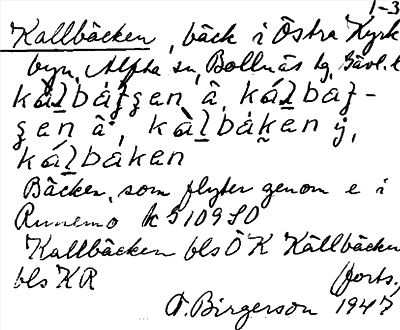 1-3
Kallbäcken, bäck i Östra Kyrk
byn, Alfta sn, Bollnäs tg, Gävl. l
kál̲báʒ-
ʒen ȧ, kál̲bȧken ẏ,
kál̲bȧken
Bäcken, som flyter genom e i
Runemo k 5109 SO
Kallbäcken bls ÖK Källbäcken
bls KR (forts.)
D. Birgerson 1947